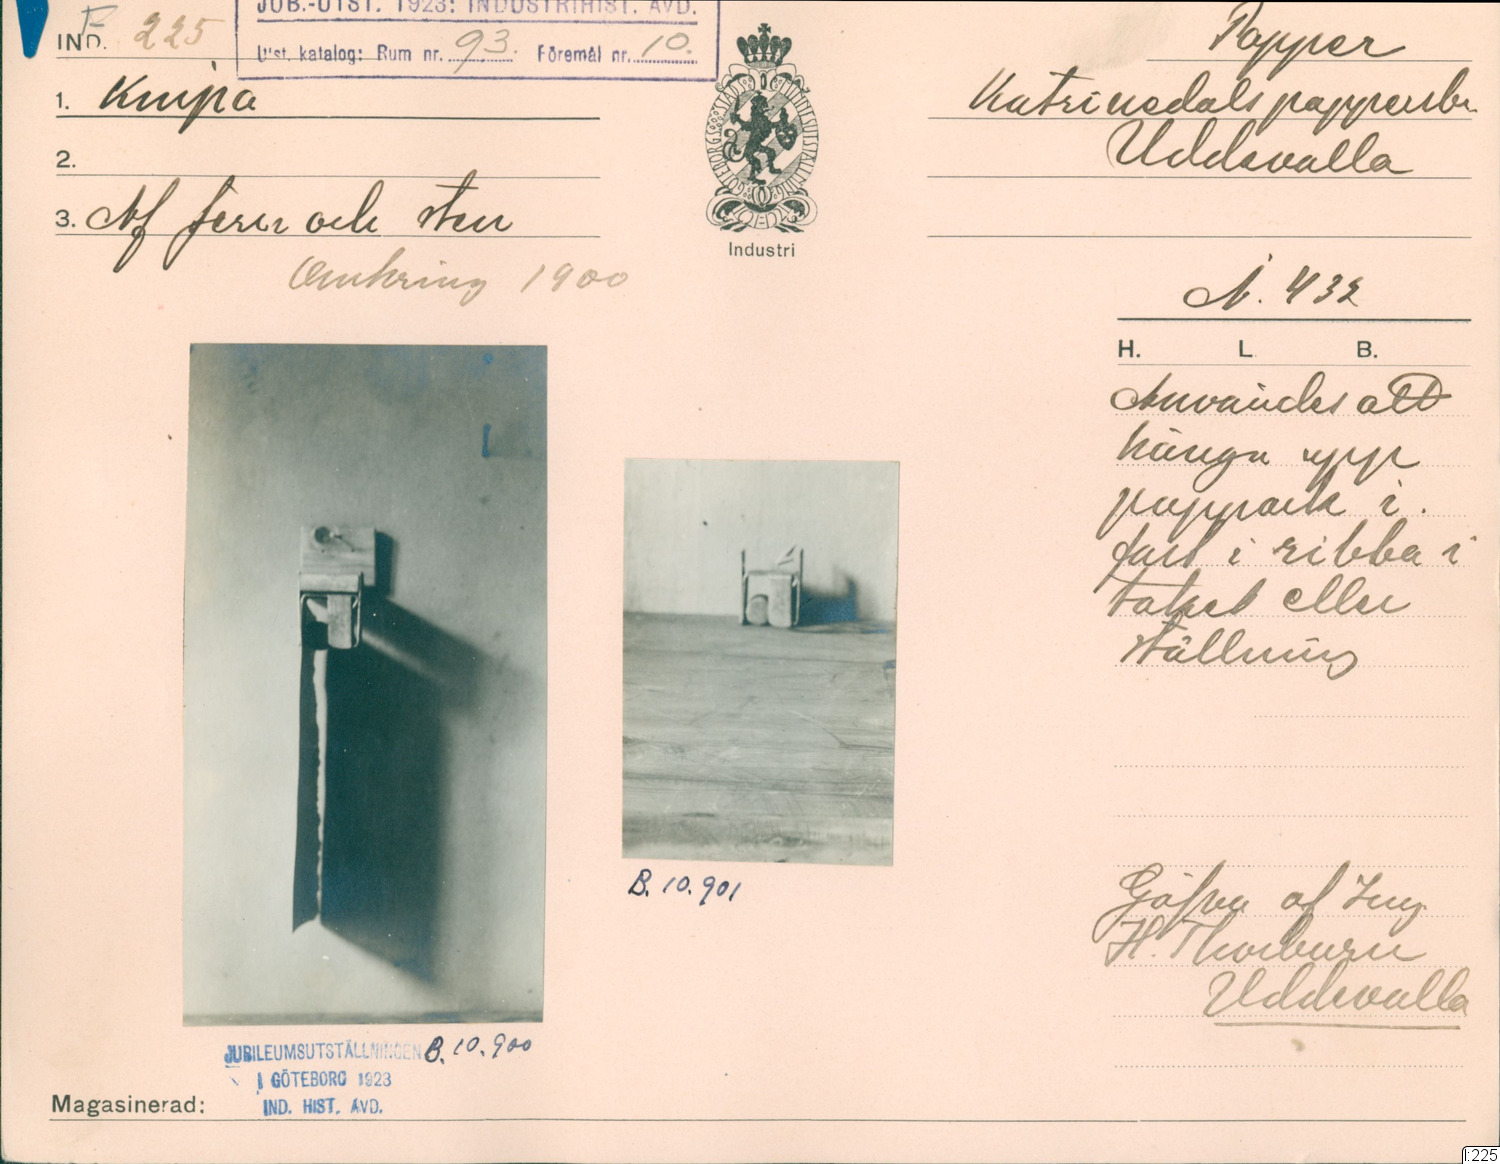 JUB.-UTST. 1923: INDUSTRIHIST. AVD.
Utst. katalog: Rum nr. 93. Föremål nr. 10.
F
IND. 225
1. Knipa
2.
3. Af jern och sten
Omkring 1900
GÖTEBORGS STADS
Industri
Papper
Katrinedals pappersbr.
Uddevalla
N. 432
H. L. B.
Användes att
hänga upp
pappark i.
fast i ribba i
taket eller
ställning
Gåfva af Ing.
H. Thorburn
Uddevalla
B. 10.901
B. 10.900
JUBILEUMSUTSTÄLLNINGEN
I GÖTEBORG 1923
IND. HIST. AVD.
Magasinerad:
I:225